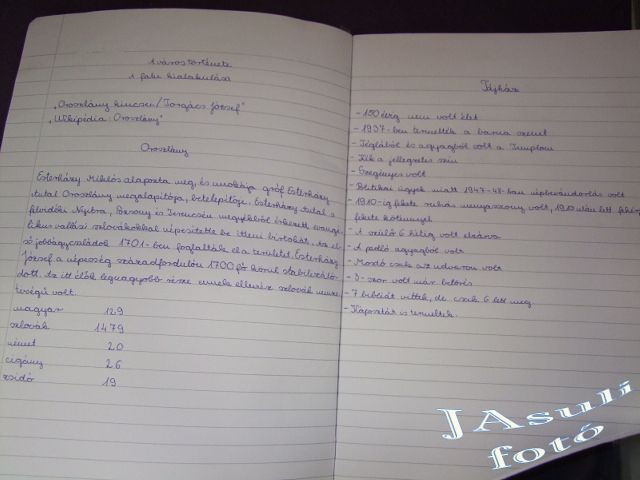 A város története
A falu kialakulása
„Oroszlány kincsei / Forgács József"
„Wikipédia: Oroszlány"
Oroszlány
Esterházy Miklós alapozta meg, és unokája gróf Esterházy
Antal Oroszlány megalapítója, betelepítője. Esterházy Antal a
felvidéki Nyitra, Barsony és Trencsén megyékből érkezett evangé-
likus vallású szlovákokkal népesítette be itteni birtokát. Az el-
ső jobbágycsaládok 1701-ben foglalták el a területet. Esterházy
József a népesség századfordulón 1700 fő körül stabilizáló-
dott. Az itt élők legnagyobb része ennek ellenére szlovák nemze-
tiségű volt.
magyar 129
szlovák 1479
német 20
cigány 26
zsidó 19
Tájház
- 150 évig nem volt élet
- 1937-ben termelték a barna szenet
- Téglából és agyagból volt a Templom
- Kék a jellegzetes szín
- Szegényes volt
- Politikai ügyek miatt 1947-48-ban népvándorlás volt
- 1910-ig fekete ruhás menyasszony volt, 1910 után lett fehér,
fekete köténnyel
- A szülő 6 hétig volt elzárva
- A padló agyagból volt
- Mosdó csak az udvaron volt
- 3-szor volt már betörés
- 7 bibliát vittek, de csak 6 lett meg
- Káposztát is termeltek.
JAsuli
fotó